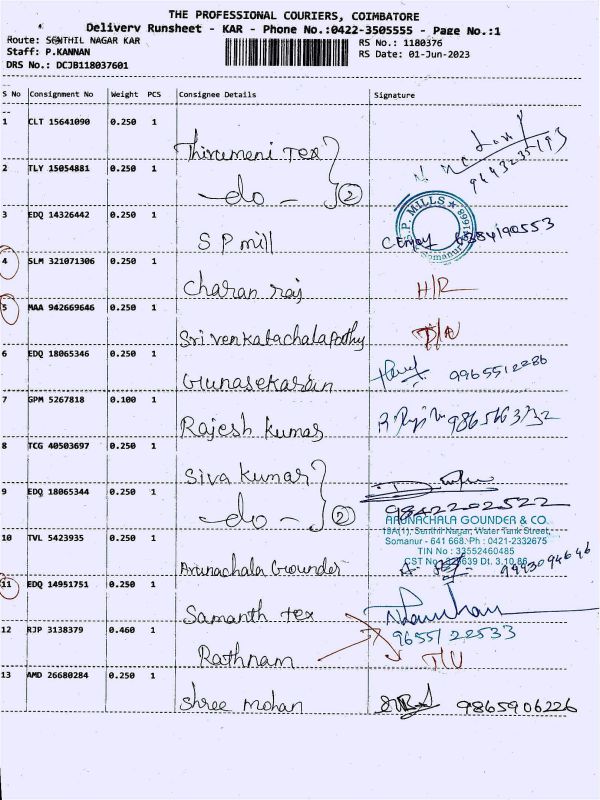 THE PROFESSIONAL COURIERS, COIMBATORE
Delivery Runsheet - KAR - Phone No.:0422-3505555 - Page No.:1
Route: SENTHIL NAGAR KAR
RS No.: 1180376
Staff: P.KANNAN
RS Date: 01-Jun-2023
DRS No.: DCJB118037601
S No Consignment No Weight PCS Consignee Details Signature
1 CLT 15641090 0.250 1
Thirumeni Tex
2 TLY 15054881 0.250 1
- do - 2
3 EDQ 14326442 0.250 1
S P mill 6384190553
S.P. MILLS
Somanur
4 SLM 321071306 0.250 1
Charan raj H/R
5 MAA 942669646 0.250 1
Sri venkatachalapathy
6 EDQ 18065346 0.250 1
Gunasekaran 9965512286
7 GPM 5267818 0.100 1
Rajesh kumar
8 TCG 40503697 0.250 1
Siva kumar
9 EDQ 18065344 0.250 1
- do - 2 9842202522
ARUNACHALA GOUNDER & CO.
18A(1), Senthil Nagar, Water Tank Street,
10 TVL 5423935 0.250 1
Somanur - 641 668. Ph : 0421-2332675
TIN No : 33552460485
Arunachala Gounder
CST No Dt. 3.10.86
11 EDQ 14951751 0.250 1
Samanth tex
12 RJP 3138379 0.460 1
9655122533
Rathnam
13 AMD 26680284 0.250 1
Shree mohan 9865906226